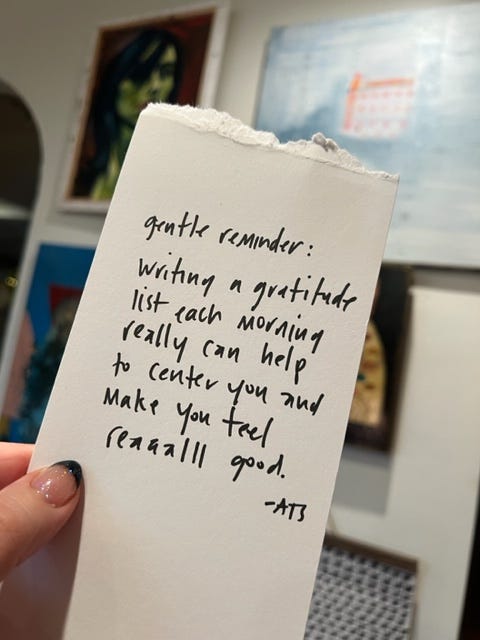 gentle reminder:
writing a gratitude
list each morning
really can help
to center you and
make you feel
reaaalll good.
-ATB